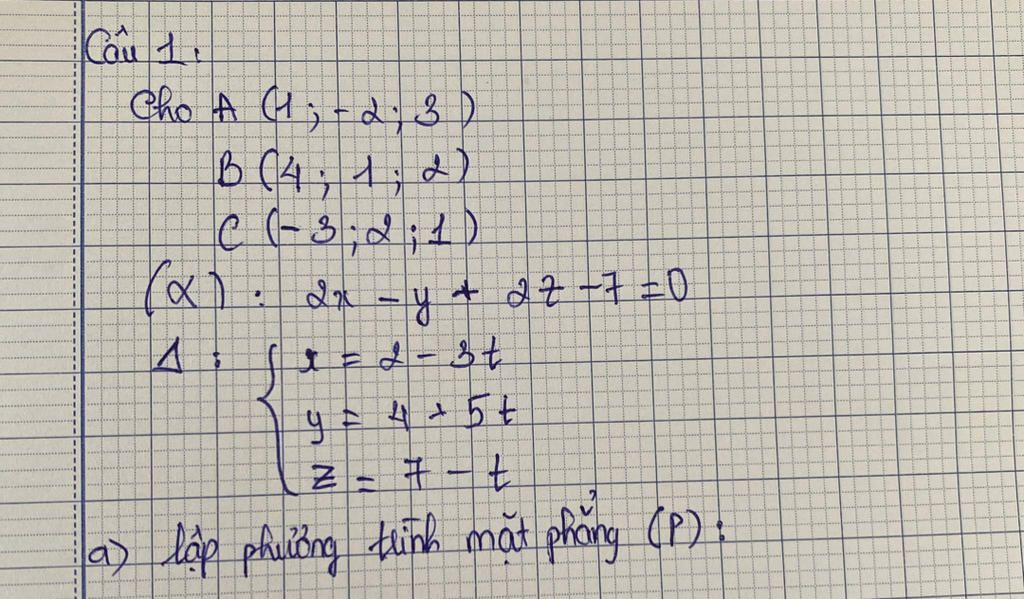 Câu 1:
Cho A (1; -2; 3)
B (4; 1; 2)
C (-3; 2; 1)
(α): 2x - y + 2z - 7 = 0
Δ: { x = 2 - 3t
y = 4 + 5t
z = 7 - t
a) lập phương trình mặt phẳng (P):